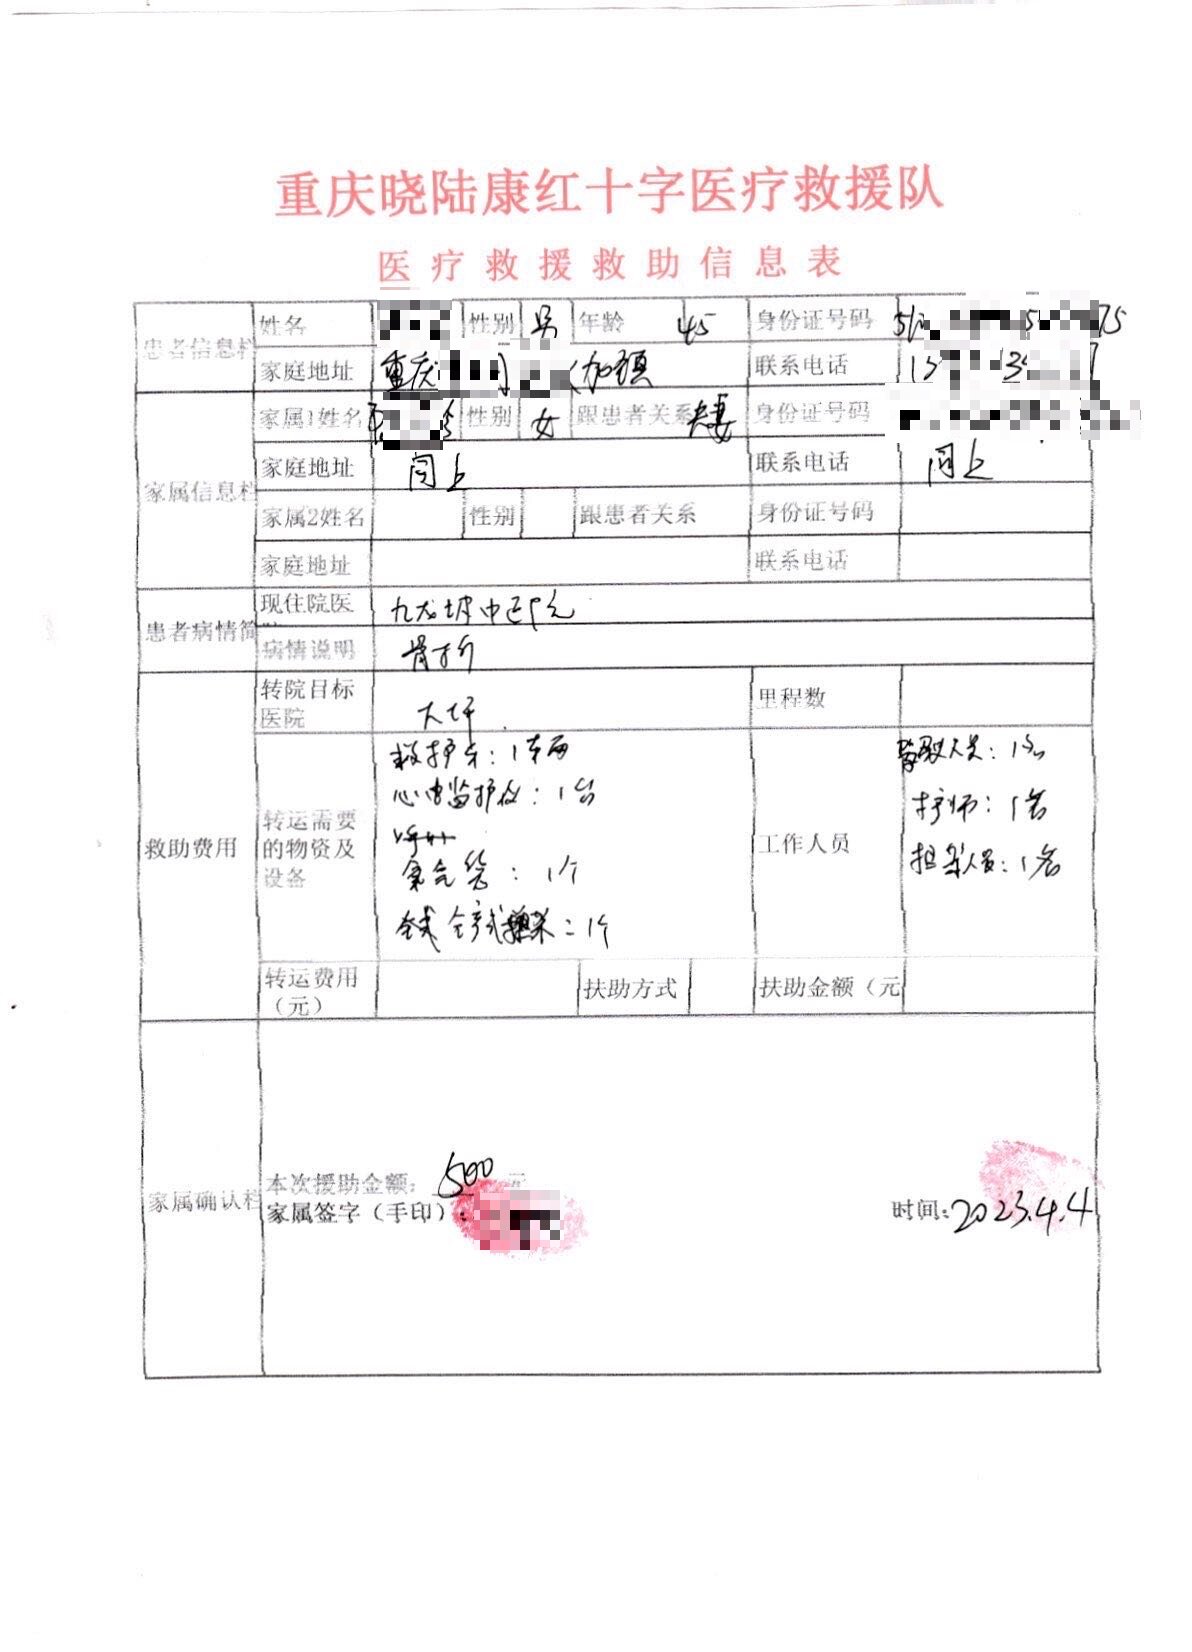 重庆晓陆康红十字医疗救援队
医疗救援救助信息表
患者信息栏 姓名 性别 男 年龄 45 身份证号码
家庭地址 重庆 加镇 联系电话
家属信息栏 家属1姓名 性别 女 跟患者关系 夫妻 身份证号码
家庭地址 同上 联系电话 同上
家属2姓名 性别 跟患者关系 身份证号码
家庭地址 联系电话
患者病情简 现住院医 九龙坡中医院
病情说明 骨折
救助费用 转院目标医院 大坪 里程数
转运需要的物资及设备 救护车：1车辆 工作人员 驾驶人员：1名
心电监护仪：1台 护师：1名
氧气袋：1个 担架人员：1名
担架：1个
转运费用（元） 扶助方式 扶助金额（元
家属确认栏 本次援助金额：500元
家属签字（手印）： 时间：2023.4.4